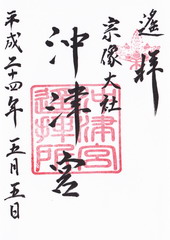 遙拝
宗像大社
沖津宮
平成二十四年五月五日
沖津宮
遥拝所